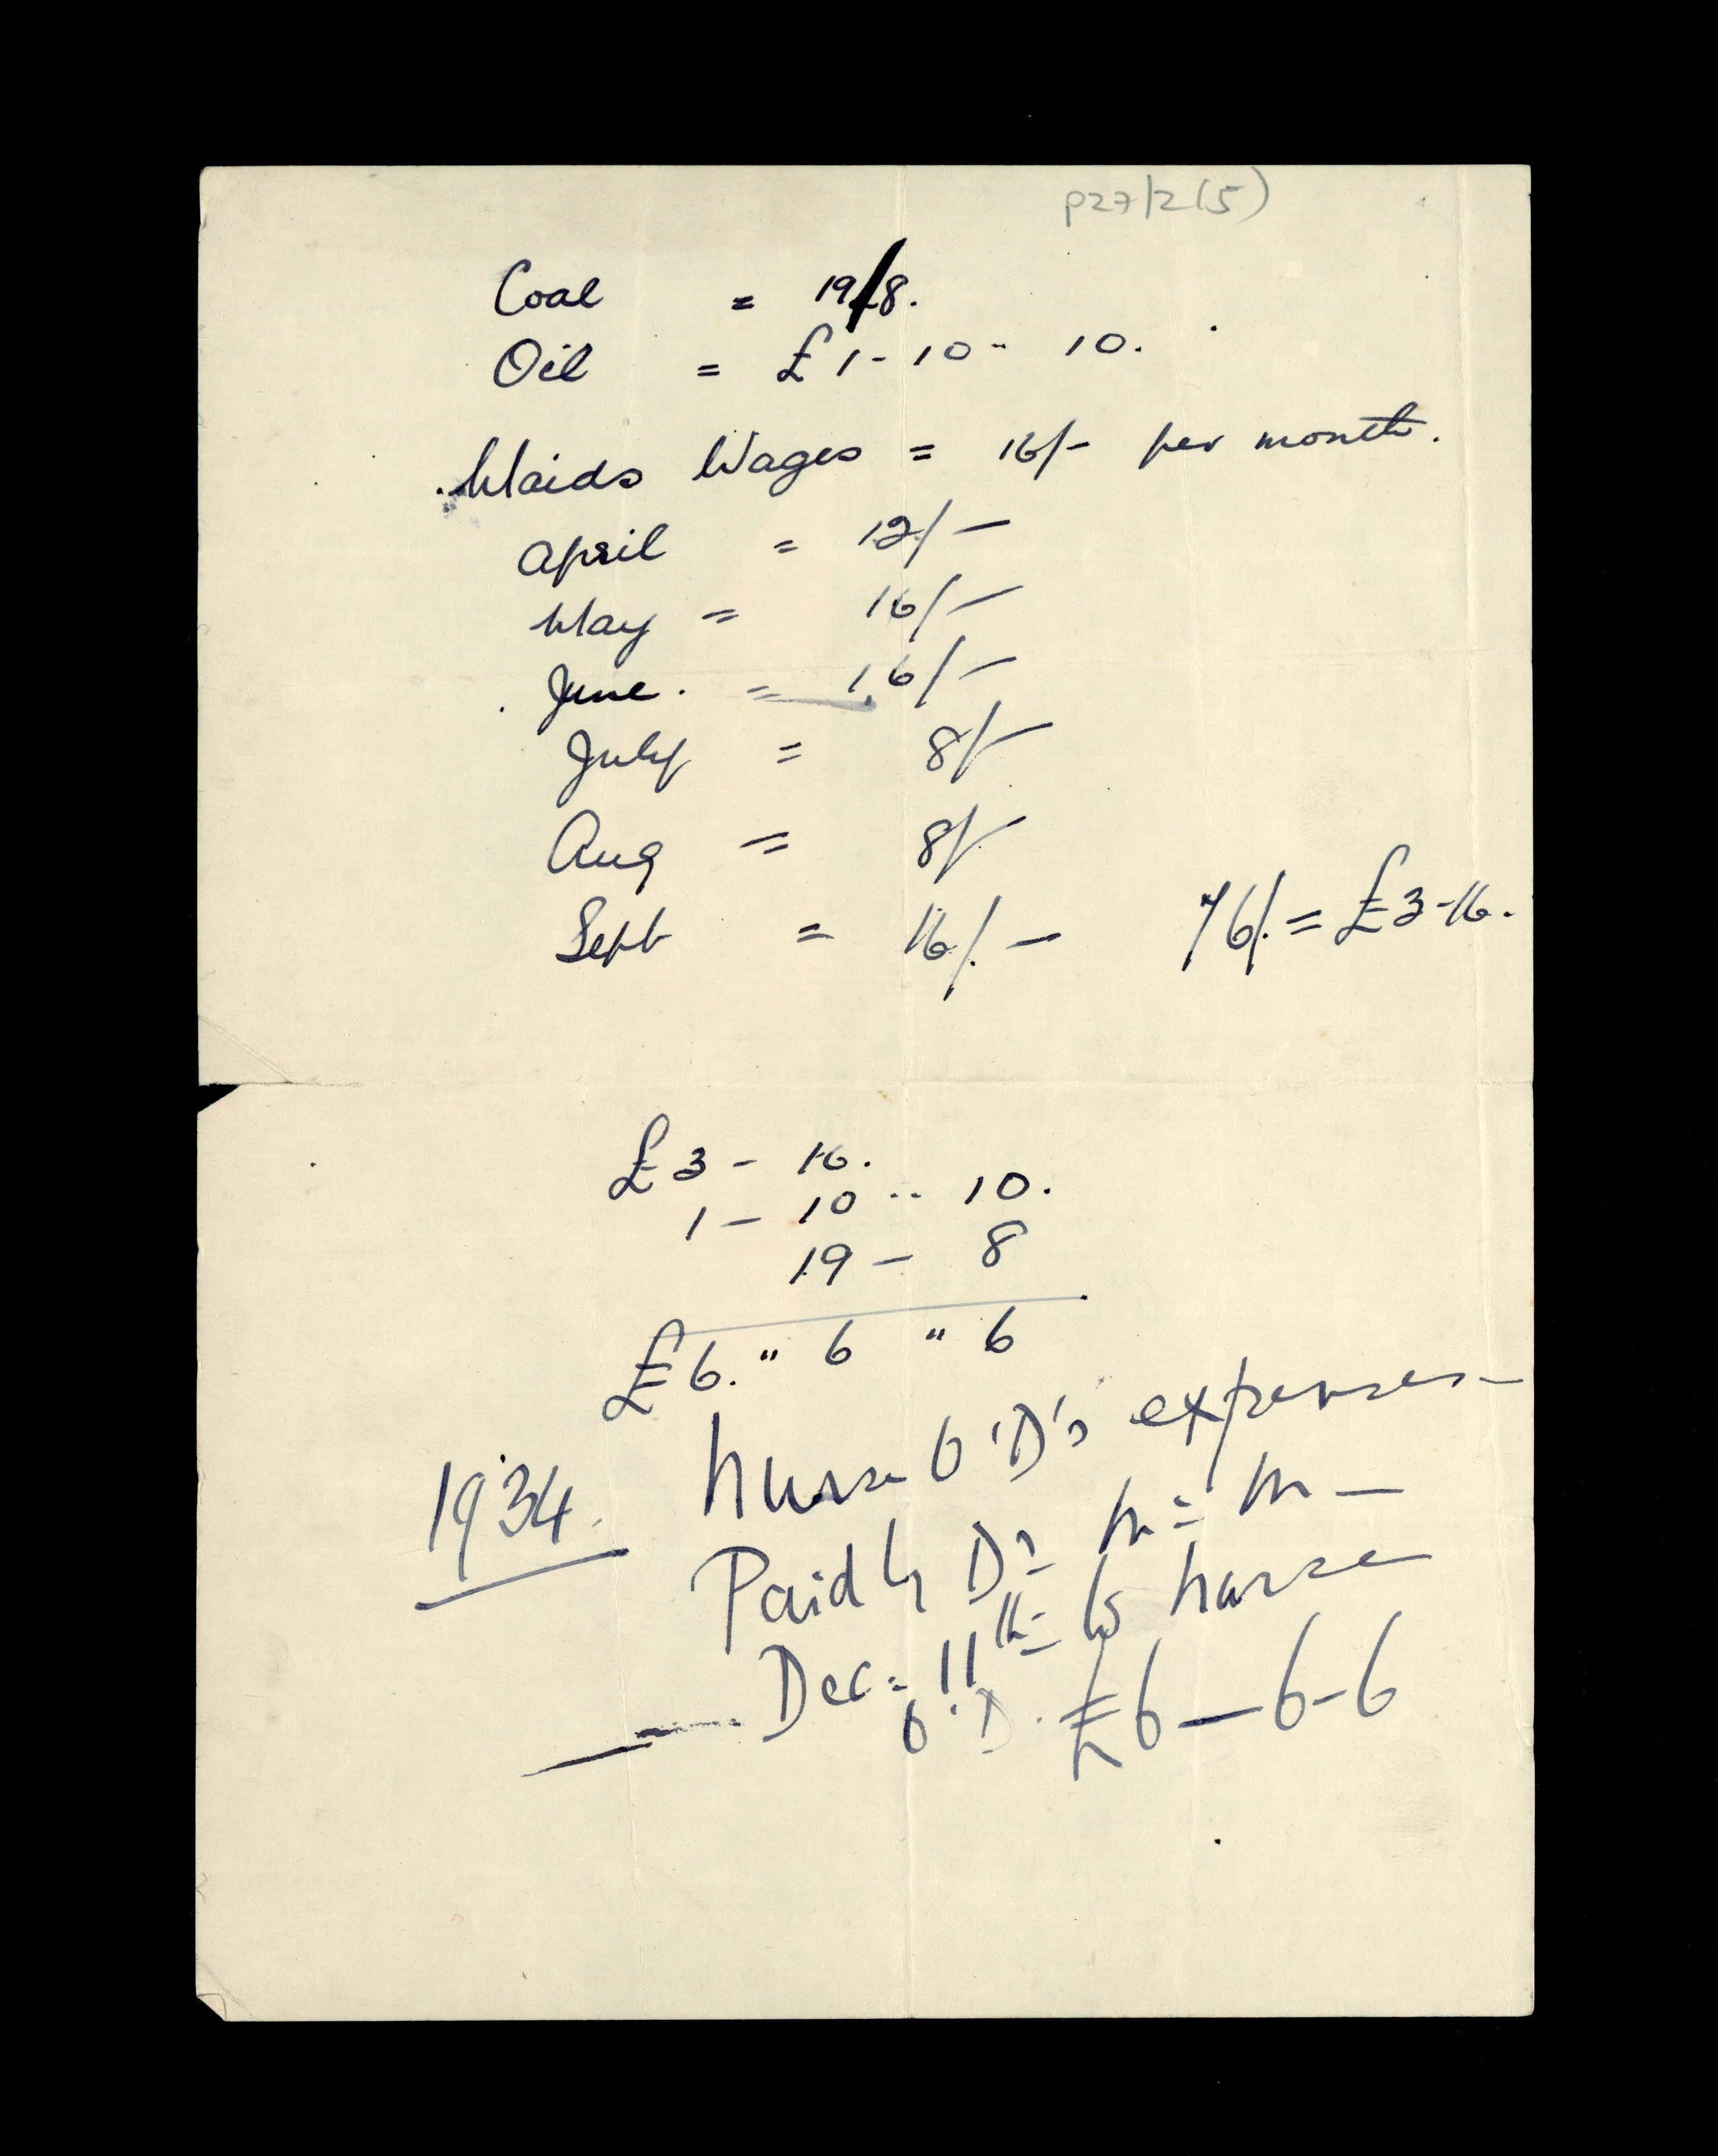 P27/2(5)
Coal = 19/8.
Oil = £1-10"10.
Maids Wages = 16/- per month.
April = 12/-
May = 16/-
June. = 16/-
July = 8/-
Aug = 8/-
Sept = 16/-
76/. = £3-16.
£3 - 16.
1 - 10 .. 10.
19 - 8
£6. " 6 " 6
1934. Nurse O'D's expenses-
Paid by Dr
Dec. 11th to Nurse
O.D. £6-6-6